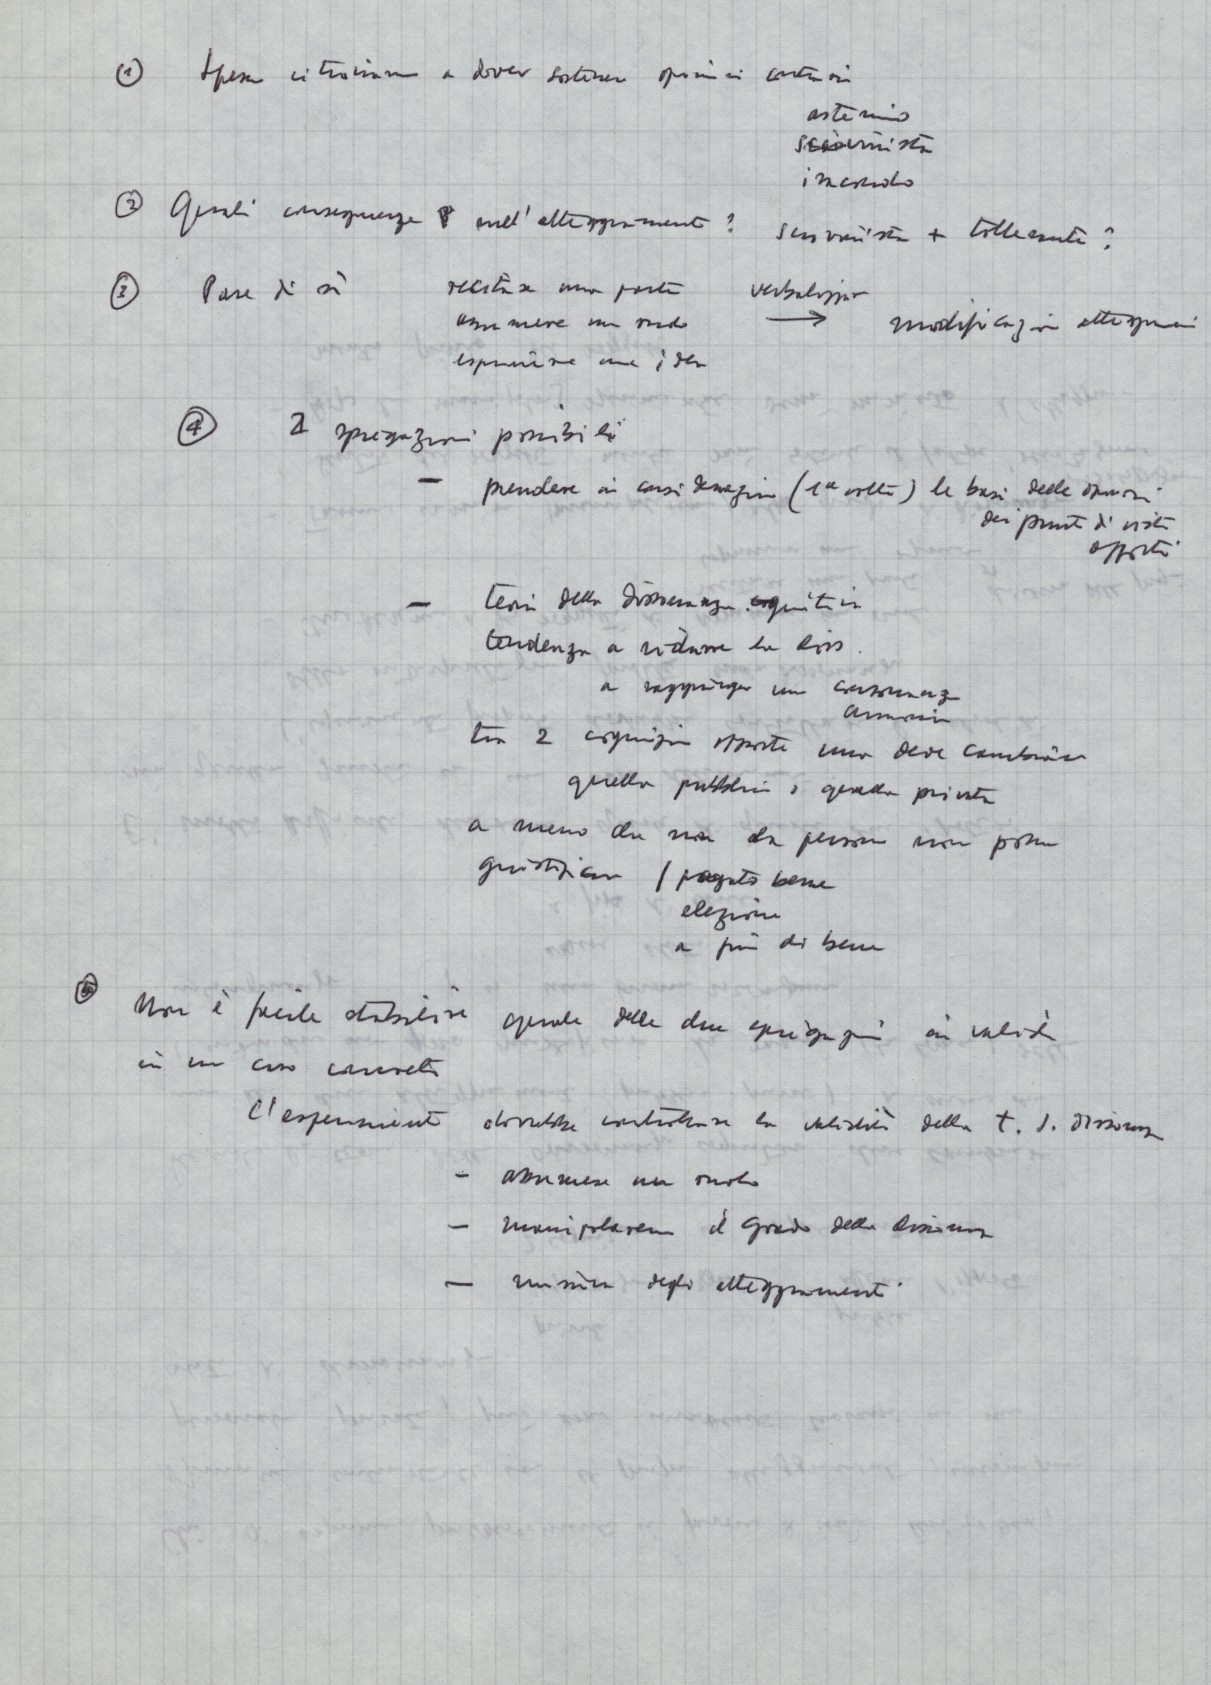 ① Spesso ci troviamo a dover sostenere opinioni contrarie
astemio
② Quali conseguenze sull'atteggiamento? sciovinista + tollerante?
③ Pare di sì recitare una parte verbalizzare
assumere un ruolo → modificazioni atteggiamenti
esprimere una idea
④ 2 spiegazioni possibili
- prendere in considerazione (1ª volta) le basi delle opinioni
dei punti di vista
opposti
- teoria della dissonanza cognitiva
tendenza a ridurre la diss.
a raggiungere una consonanza
armonia
tra 2 cognizioni opposte una deve cambiare
quella pubblica o quella privata
a meno che non la persona non possa
giustificare / pagato bene
elezione
a fin di bene
⑤ Non è facile stabilire quale delle due spiegazioni sia valida
in un caso concreto
L'esperimento dovrebbe controllare la validità della t. d. dissonanza
- assumere un ruolo
- manipolazione il grado della dissonanza
- misura degli atteggiamenti